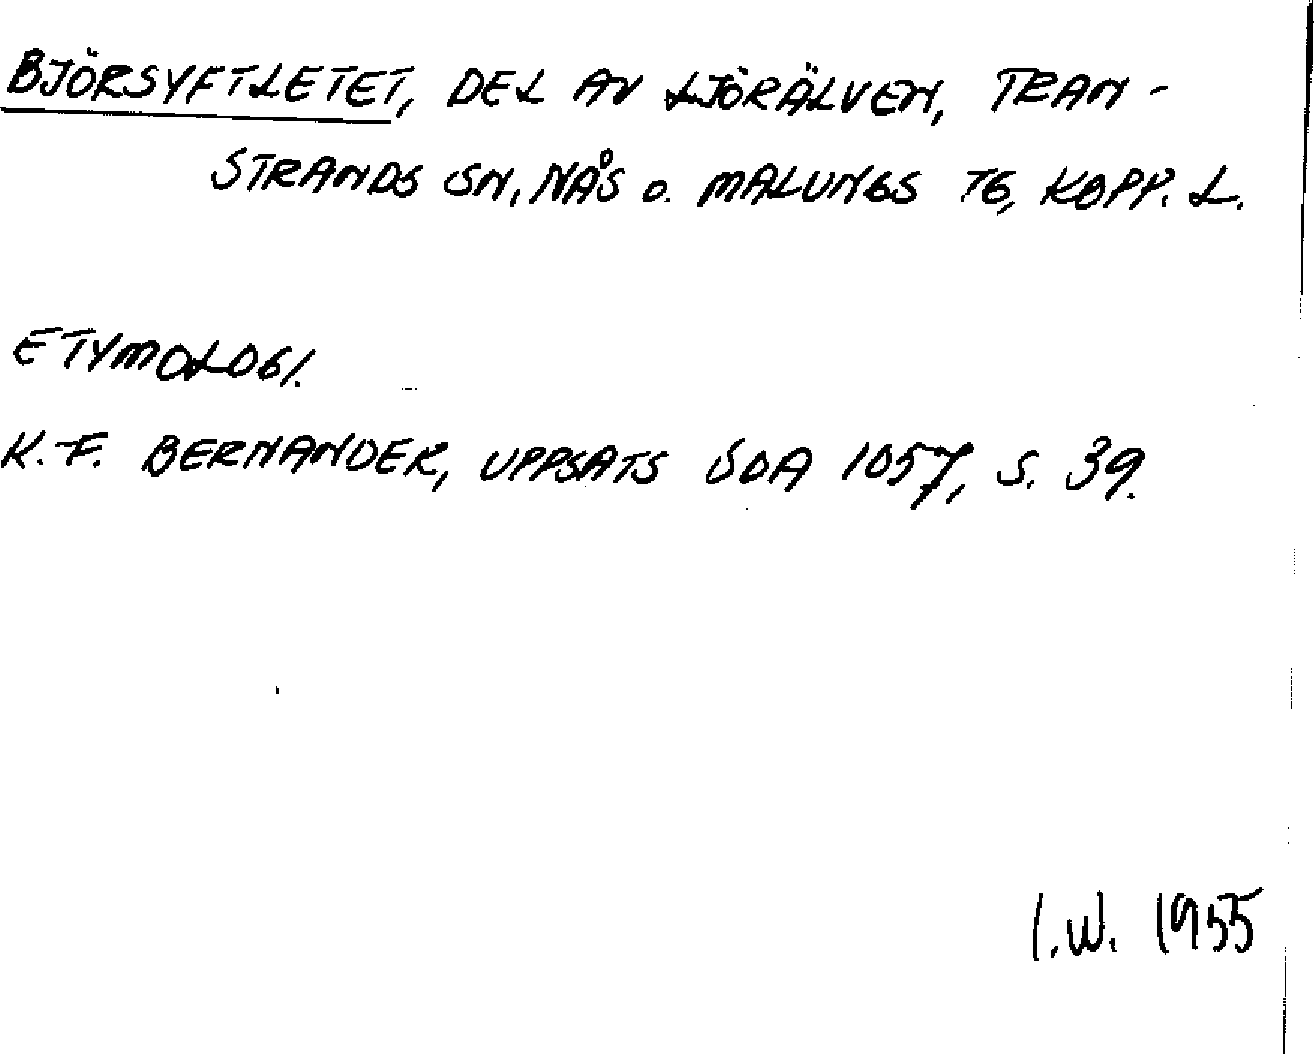 BJÖRSYFTLETET, DEL AV LJÖRÄLVEN, TRAN-
STRANDS SN, NÅS O. MALUNGS TG, KOPP. L.
ETYMOLOGI.
K.-F. BERNANDER, UPPSATS SOA 1057, S. 39.
I.W. 1955